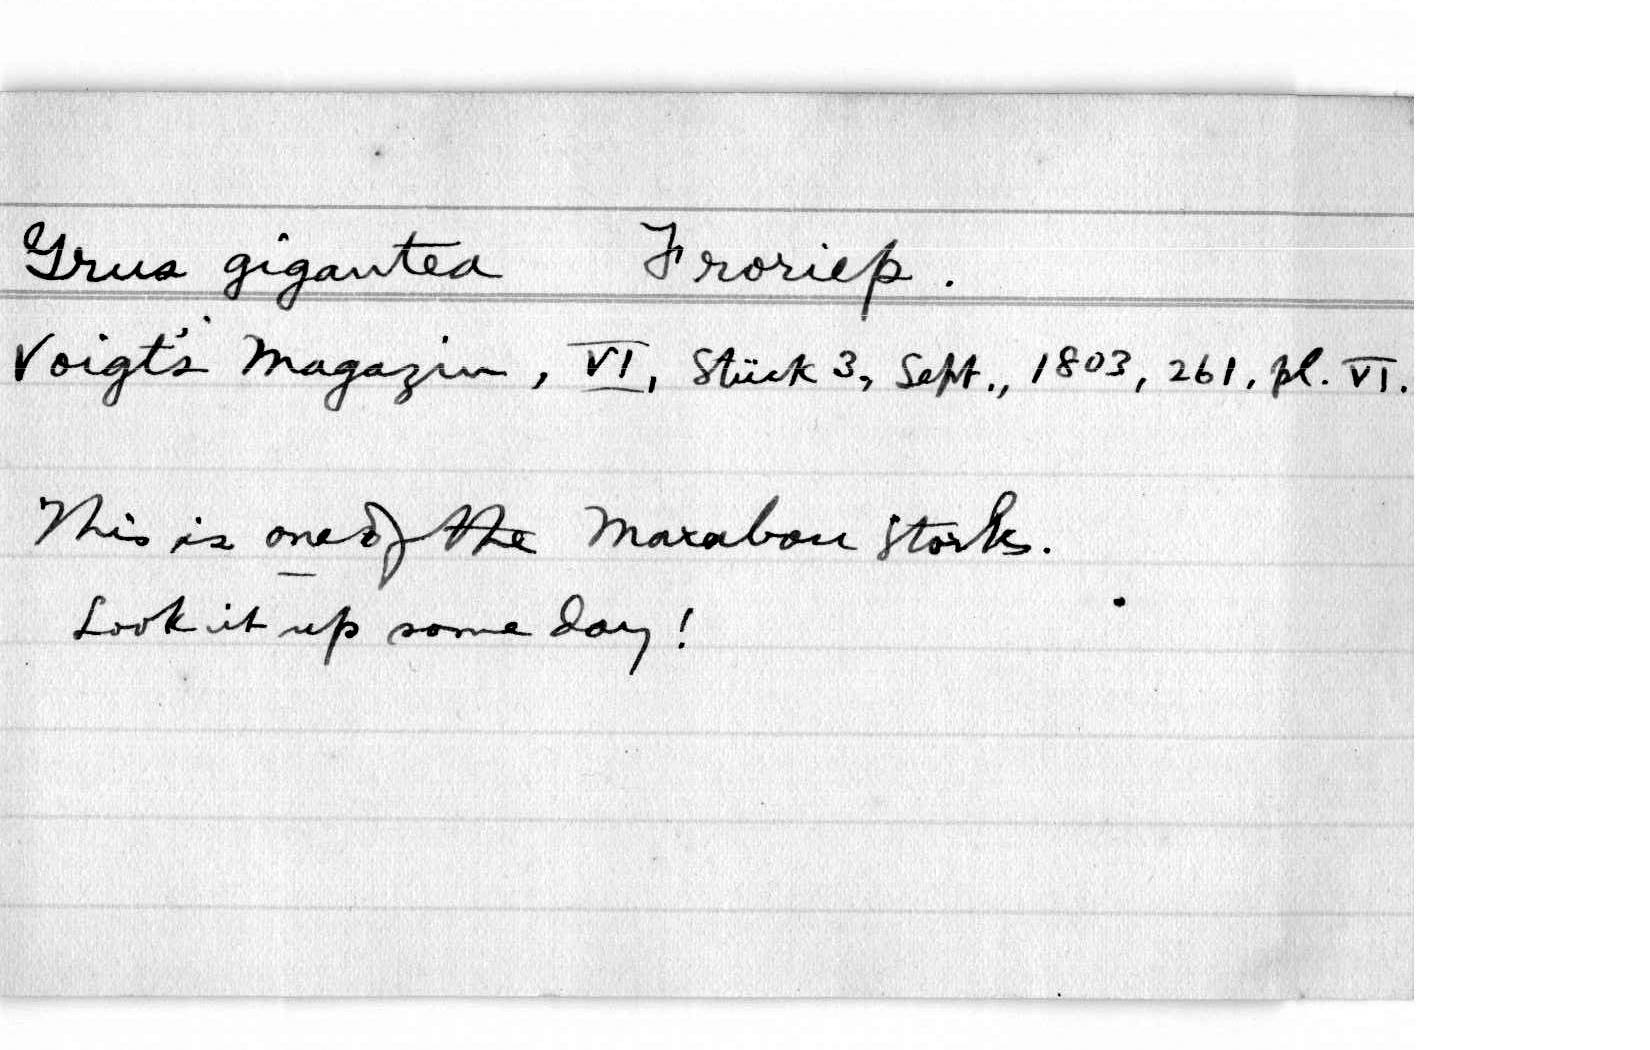 Grus gigantea Froriep.
Voigt's Magazin, VI, Stück 3, Sept., 1803, 261, pl. VI.
This is one of the Marabou Storks.
Look it up some day!